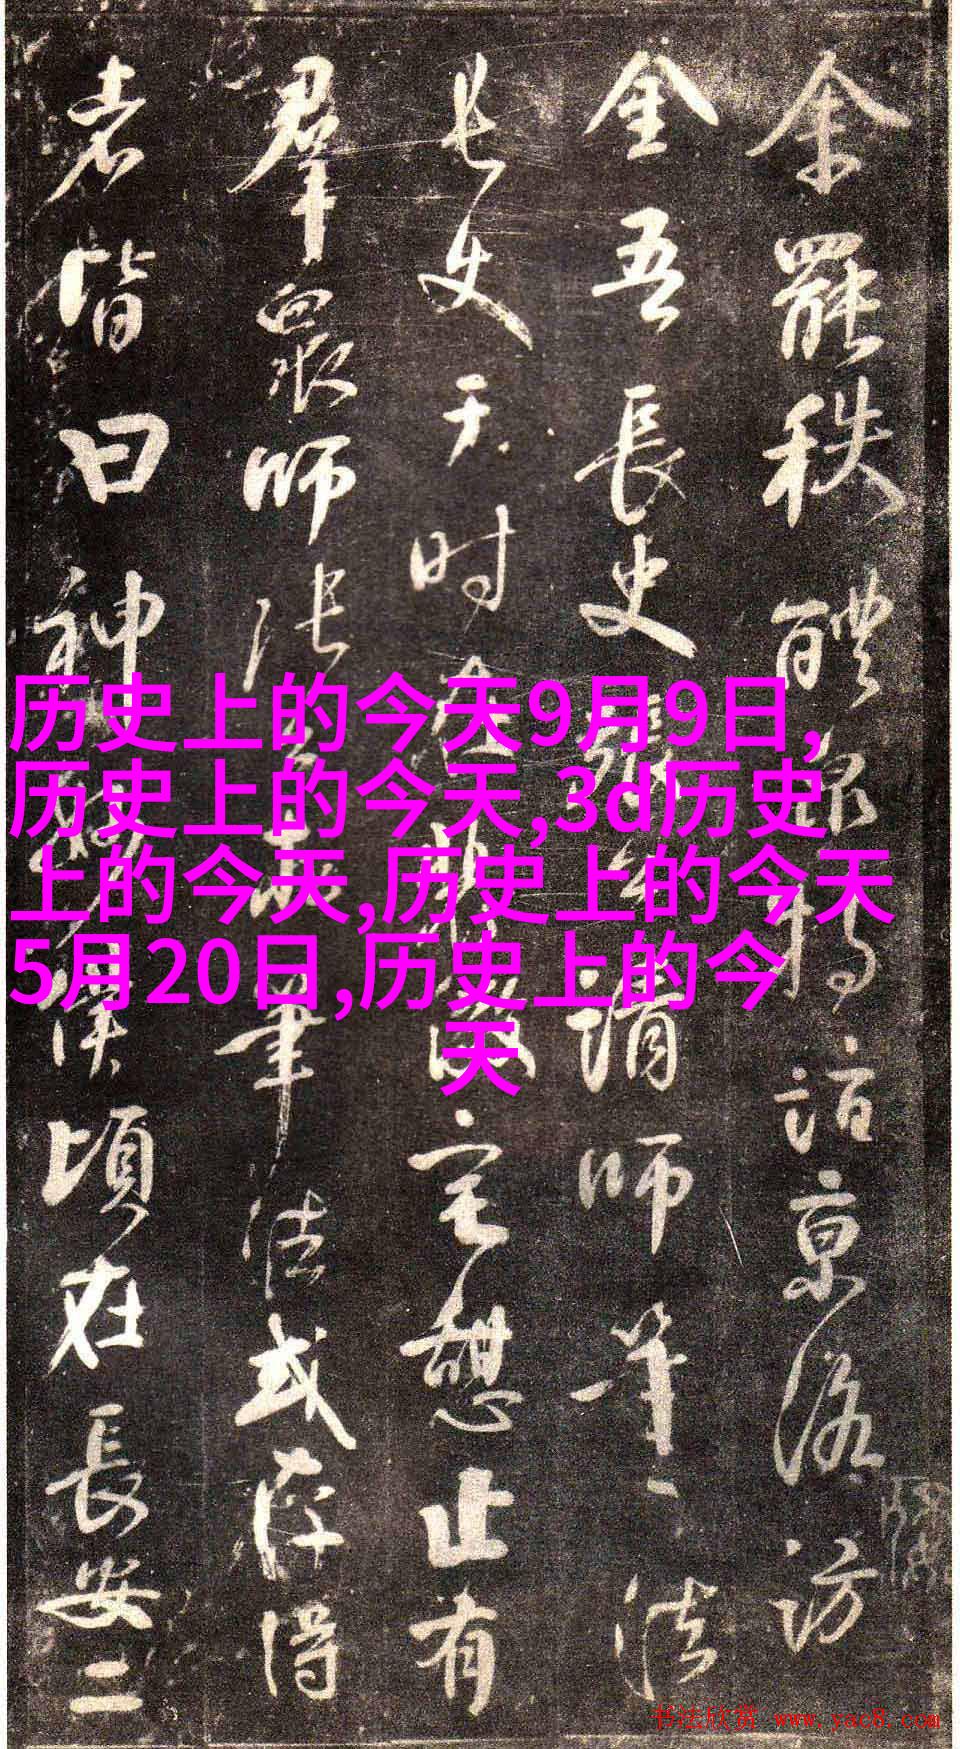 余罷秩醴泉特詣京洛訪
金吾長史張請師筆法
長史于时在裴宅憩止有
羣眾師張筆法或存得
者皆曰神僕頃在長安二
历史上的今天9月9日,
历史上的今天,3d历史
上的今天,历史上的今天
5月20日,历史上的今
天
书法欣赏 www.yac8.com